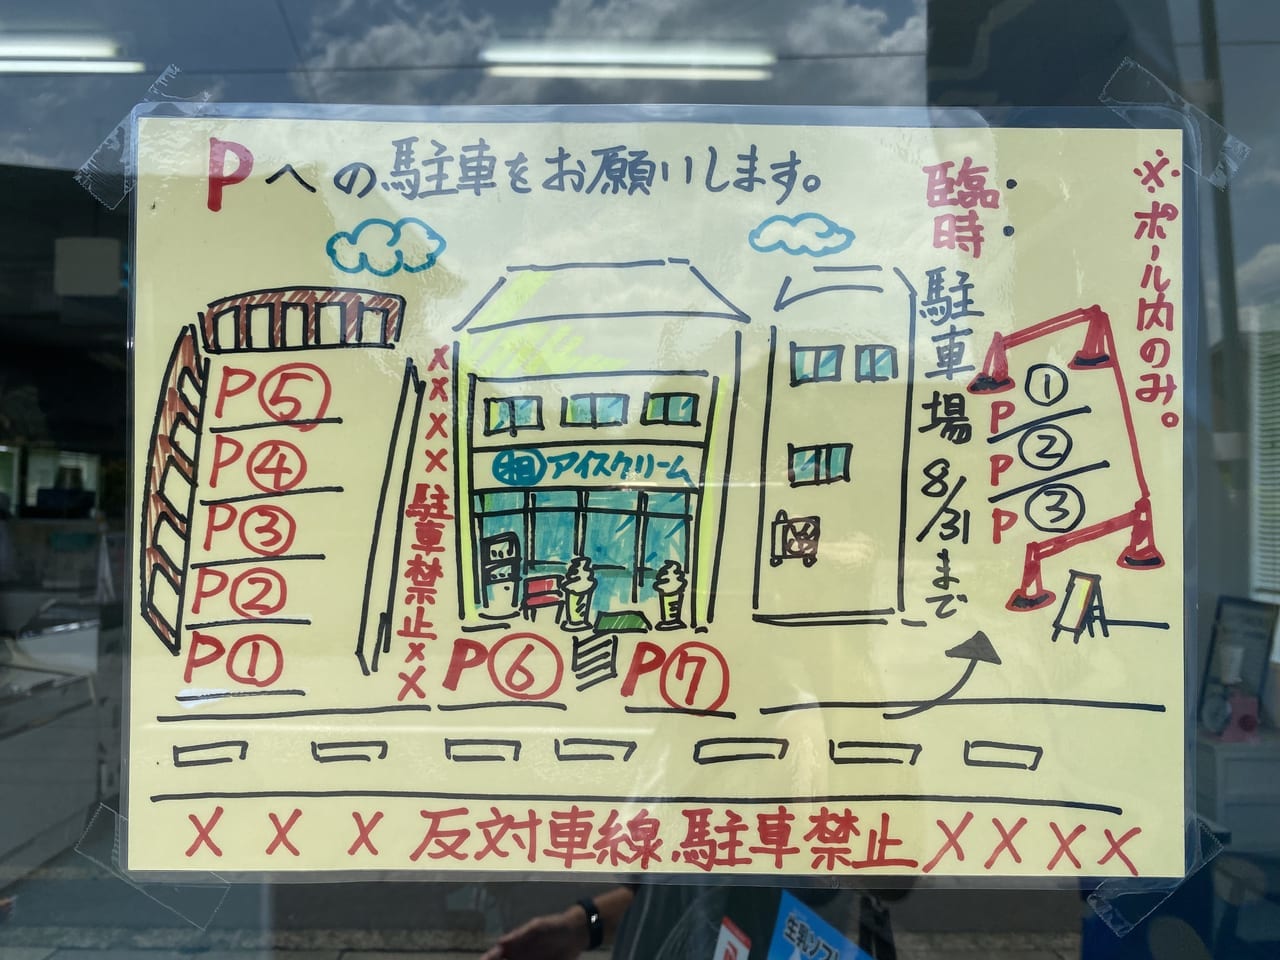 Pへの駐車をお願いします。
臨時:
駐車場 8/31まで
※ポール内のみ。
P①
P②
P③
P⑤
P④
P③
P②
P①
××××駐車禁止××
アイスクリーム
P⑥
P⑦
×××反対車線駐車禁止××××
生乳ソフト